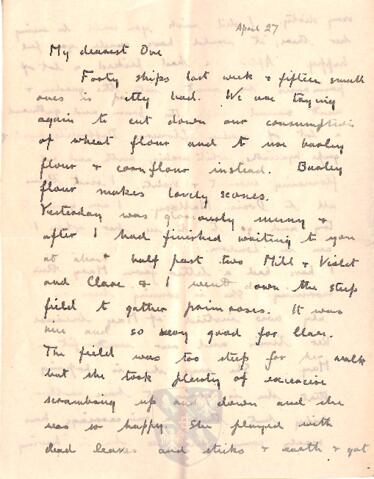 April 27
My dearest One
Forty ships last week & fifteen small
ones is pretty bad. We are trying
again to cut down our consumption
of wheat flour and to use barley
flour & cornflour instead. Barley
flour makes lovely scones.
Yesterday was gloriously sunny &
after I had finished writing to you
at about half past two Mill & Violet
and Clare & I went down the steep
field to gather primroses. It was
and so very good for Clare.
The field was too steep for her walk
but she took plenty of exercise
scrambling up and down and she
was so happy. She played with
dead leaves and sticks & earth & got